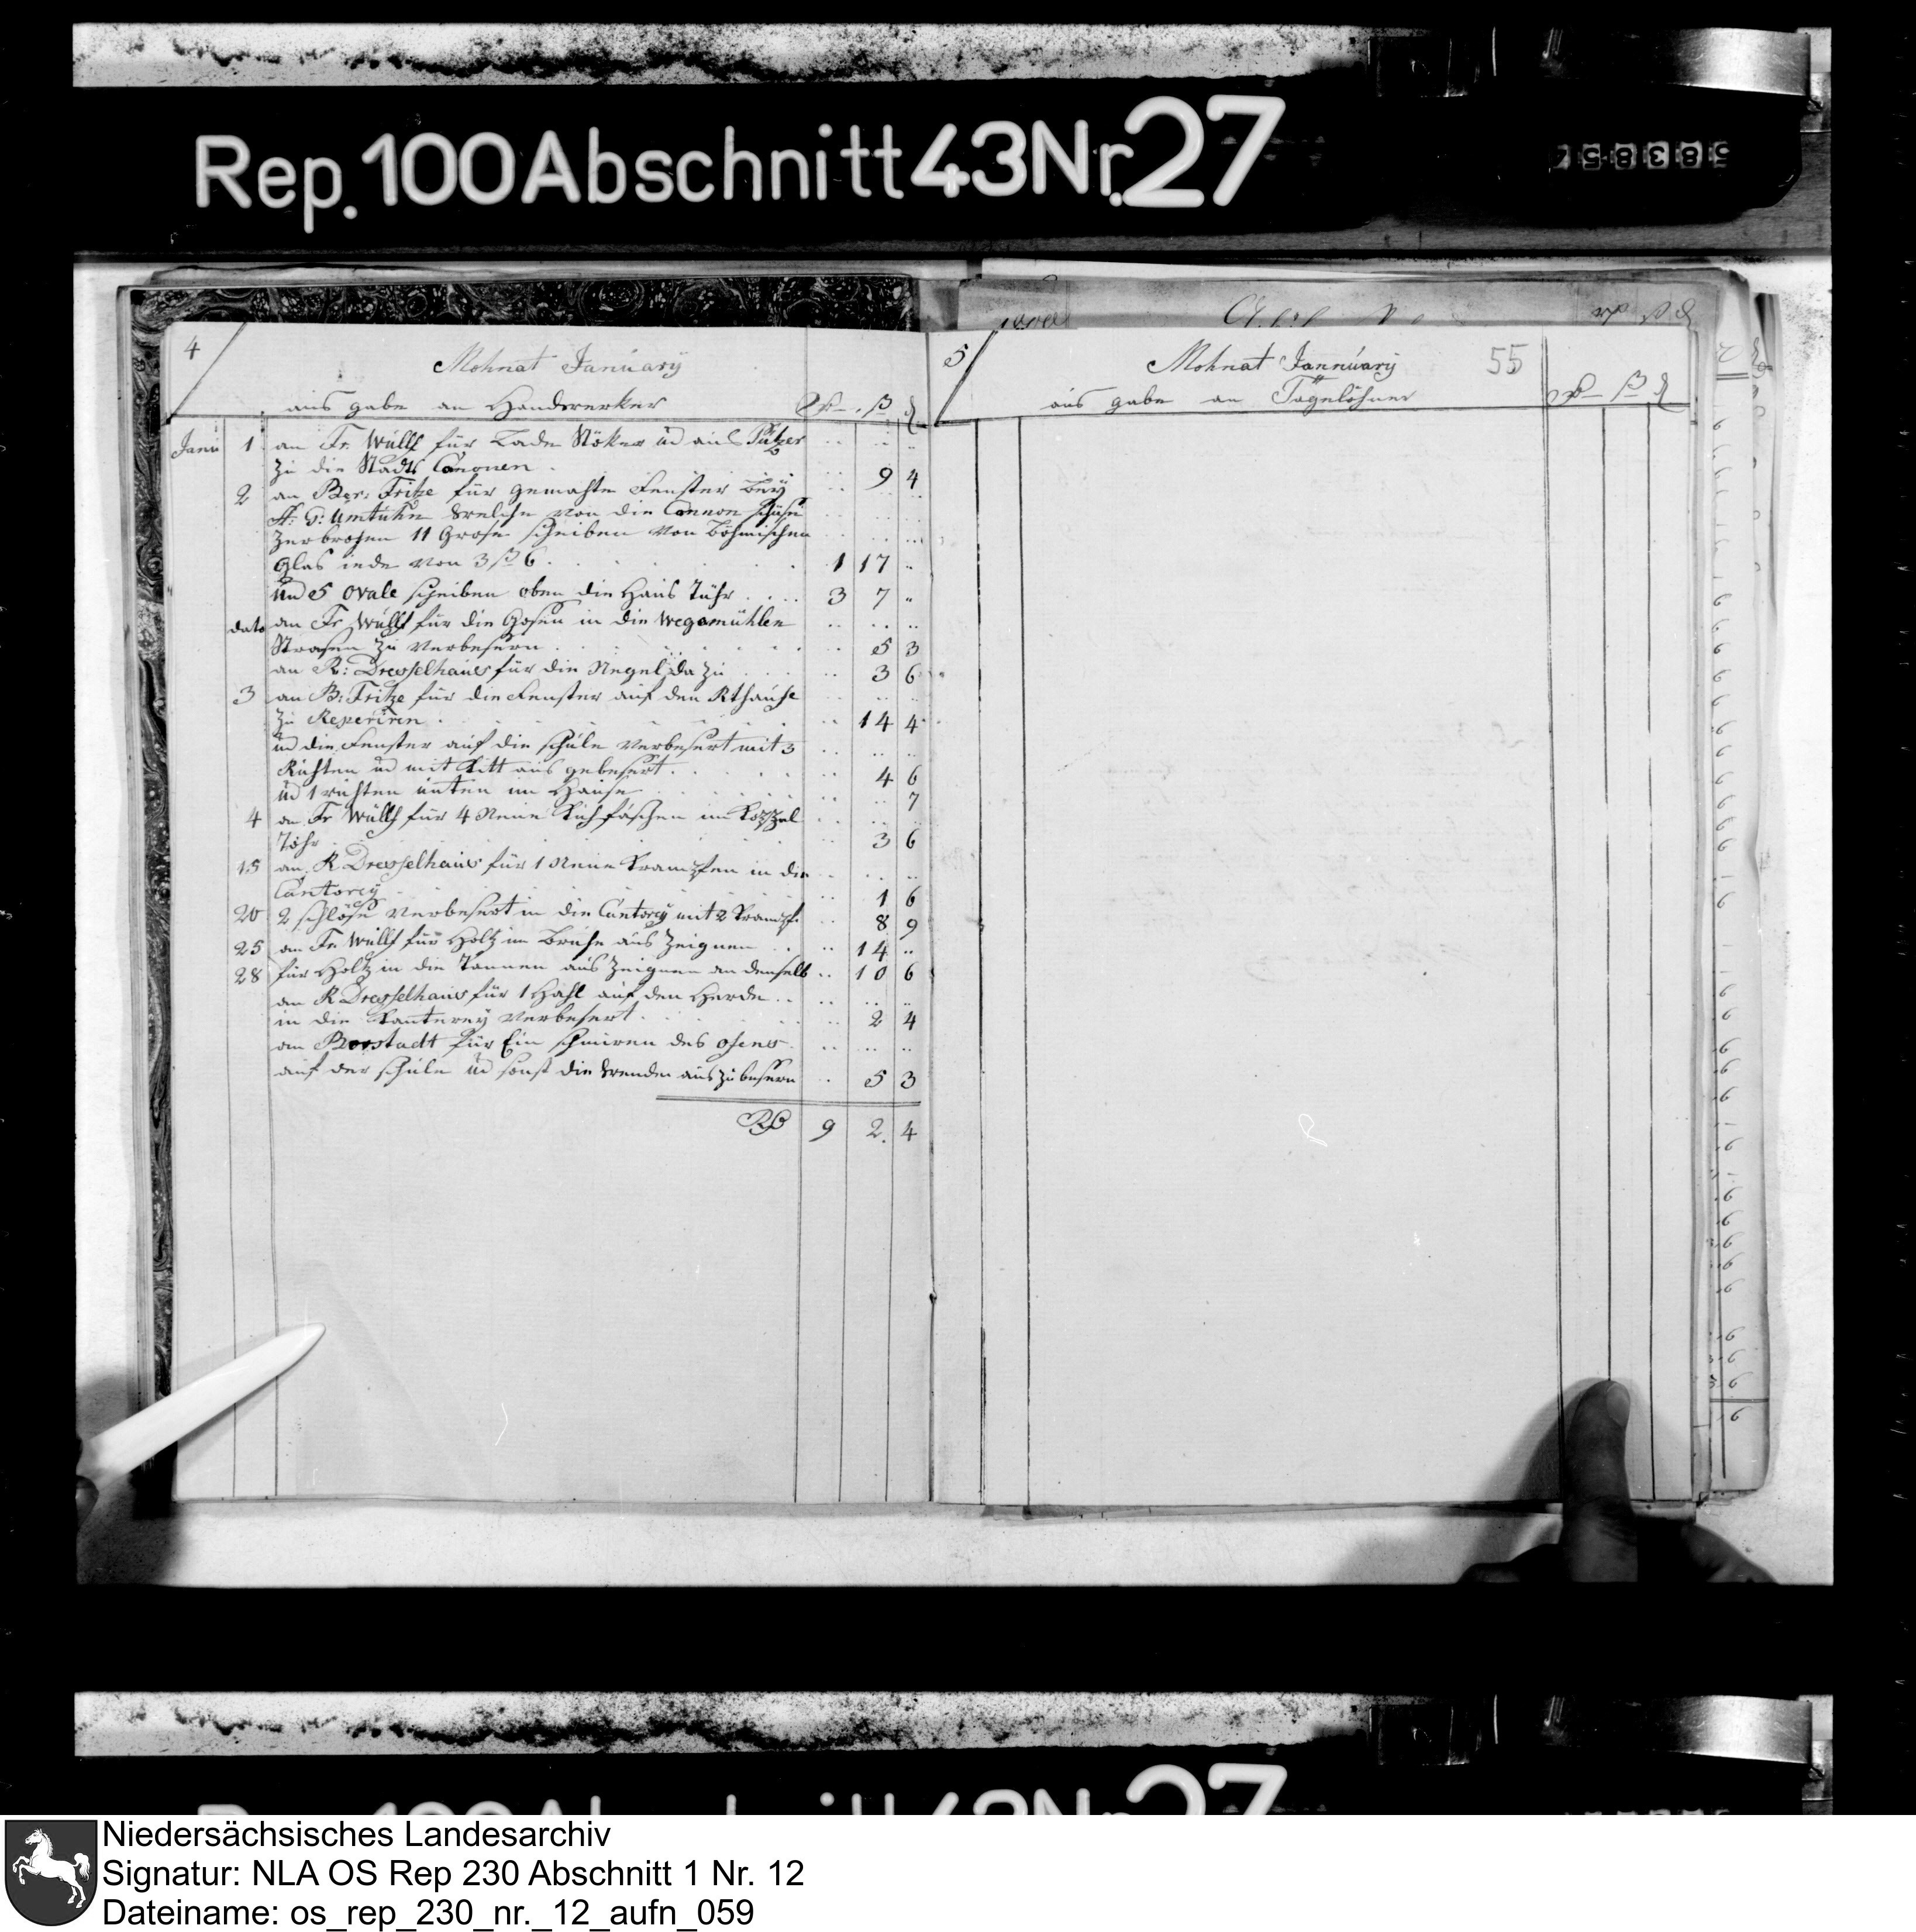 Rep. 100 Abschnitt 43 Nr. 27
58385
4
Mohnat Januarÿ
aus gabe an Handwerker Rth ß d
Janu 1 an Fr. Wulff für Lade Stöker ud aus Putzer
zu die Stadts Canonen 9 4
2 an Ber: Fritze für gemachte Fenster beÿ
H: G: Amtuhn welche von die Cannon schüse
zerbrochen 11 Grose scheiben von Böhmischen
Glas iede von 3 ß 6 1 17
und 5 ovale scheiben oben die Haus Tühr 3 7
dato an Fr Wulff für die Gosen in die wegemühlen
Strasen zu verbesern 5 3
an R: Dresselhaus für die Negel da zu 3 6
3 an B: Fritze für die Fenster auf den Rthause
zu Reperiren 14 4
ud die Fenster auf die schule verbesert mit 3
Ruhten ud mit Kitt aus gebesert 4 6
ud 1 ruhten unten im Hause 7
4 an Fr Wulff für 4 Neue
Töhr 3 6
15 an R Dresselhaus für 1 Neue Krampfen in die
Cantoreÿ 1 6
20 2 schlöser verbesert in die Cantoreÿ mit 2 Krampf. 8 9
25 an Fr Wulff für Holtz im Bruche aus Zeignen 14
28 für Holtz in die Tannen aus Zeignen an denselb 10 6
an R Dresselhaus für 1 Hahl auf den Herde
in die Kantereÿ verbesert 2 4
an Borstadt für Ein schmiren des ofens
auf der schule ud sonst die wende auszubesern 5 3
Rth 9 2 4
5
Mohnat Jannuarÿ 55
aus gabe an Tagelöhner Rth ß d
Niedersächsisches Landesarchiv
Signatur: NLA OS Rep 230 Abschnitt 1 Nr. 12
Dateiname: os_rep_230_nr._12_aufn_059